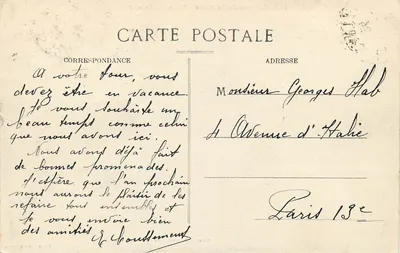 CARTE POSTALE
CORRESPONDANCE
A votre tour, vous
devez être en vacance.
Je vous souhaite un
beau temps comme celui
que nous avons ici.
Nous avons déjà fait
de bonnes promenades.
J'espère que l'an prochain
nous aurons le plaisir de les
refaire tous ensembles et
je vous envoie bien
des amitiés
ADRESSE
Monsieur Georges Hab
4 Avenue d'Italie
Paris 13e